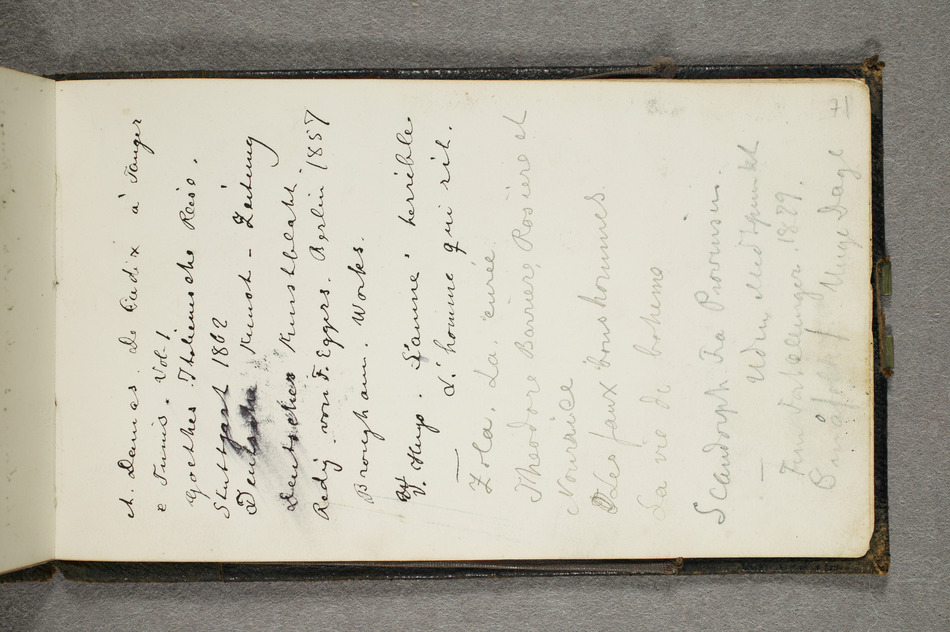 A. Dumas. De Cadix à Tanger
e Tunis. Vol. 1
Goethes Italienische Reise.
Stuttgart 1862
Deutsche Kunst - Zeitung
Deutsches Kunstblatt.
Redig. von F. Eggers. Berlin 1857
Brougham. Works.
V. Hugo. L'année herrible.
L'homme qui rit.
Zola. La curée.
Theodore Barrière, Rosière et
Nourrice
Les faux bonshommes.
La vie de boheme
Scandorph Fra Provinsen.
Uden Midtpunkt
Fem Fortællinger. 1879.
Unge Dage
71